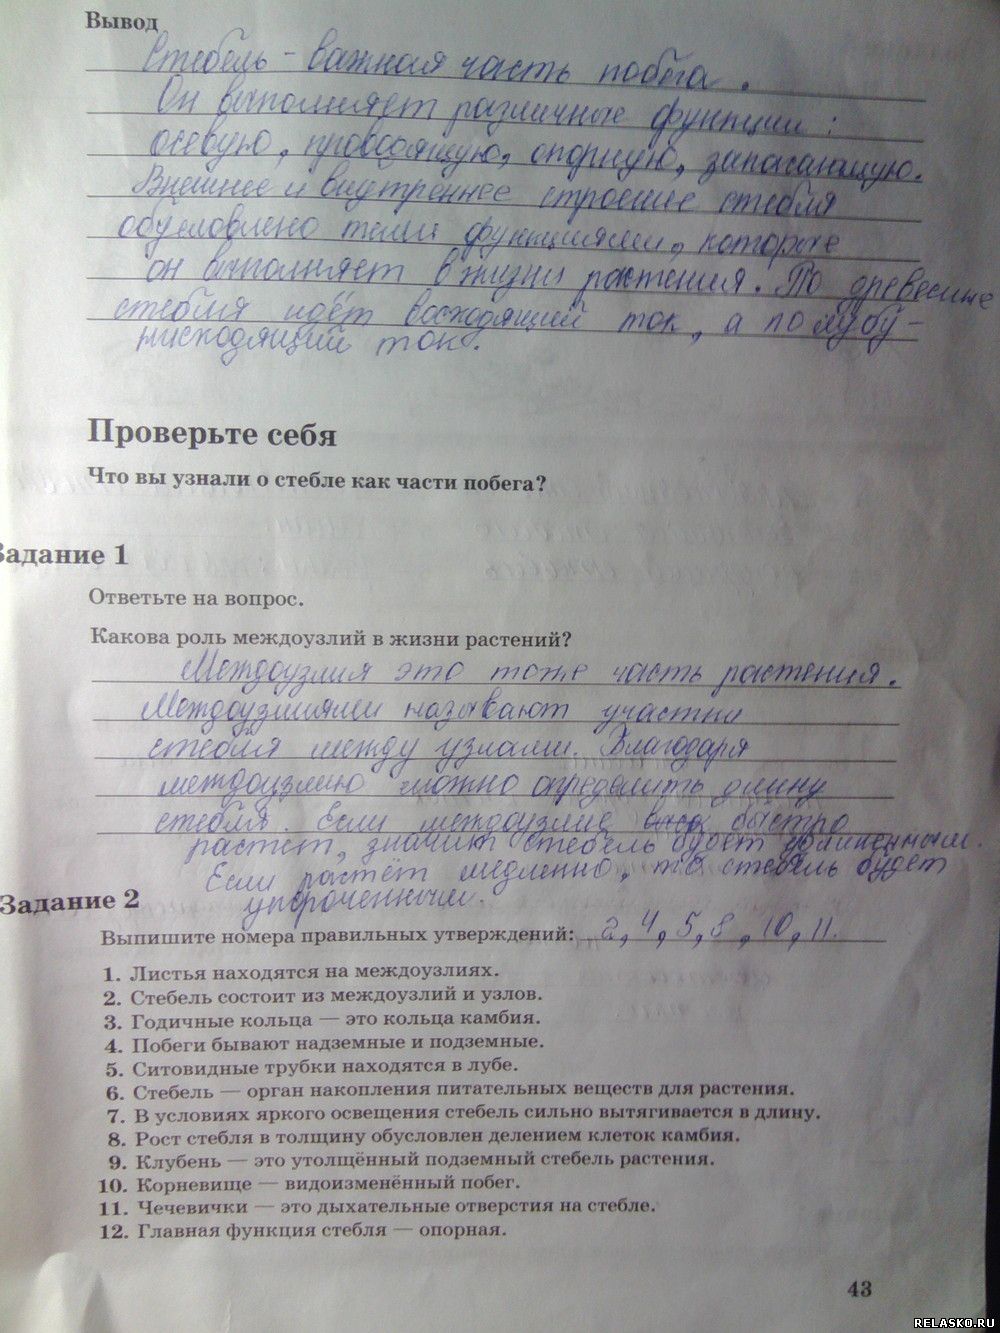 Вывод
Стебель - важная часть побега.
Он выполняет различные функции:
осевую, проводящую, опорную, запасающую.
Внешнее и внутреннее строение стебля
обусловлено теми функциями, которые
он выполняет в жизни растения. По древесине
стебля идёт восходящий ток, а по лубу -
нисходящий ток.
Проверьте себя
Что вы узнали о стебле как части побега?
Задание 1
Ответьте на вопрос.
Какова роль междоузлий в жизни растений?
Междоузлия это тоже часть растения.
Междоузлиями называют участки
стебля между узлами. Благодаря
междоузлию можно определить длину
стебля. Если междоузлие быстро
растёт, значит стебель будет удлиненным.
Если растёт медленно, то стебель будет
укороченным.
Задание 2
Выпишите номера правильных утверждений: 2, 4, 5, 8, 10, 11.
1. Листья находятся на междоузлиях.
2. Стебель состоит из междоузлий и узлов.
3. Годичные кольца — это кольца камбия.
4. Побеги бывают надземные и подземные.
5. Ситовидные трубки находятся в лубе.
6. Стебель — орган накопления питательных веществ для растения.
7. В условиях яркого освещения стебель сильно вытягивается в длину.
8. Рост стебля в толщину обусловлен делением клеток камбия.
9. Клубень — это утолщённый подземный стебель растения.
10. Корневище — видоизменённый побег.
11. Чечевички — это дыхательные отверстия на стебле.
12. Главная функция стебля — опорная.
43
RELASKO.RU